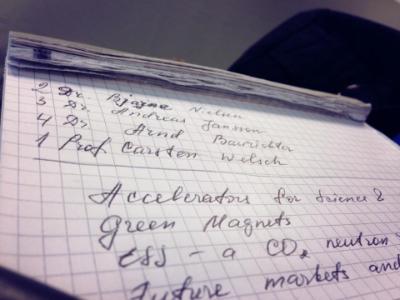 2 Dr. Bjarne Nielsen
3 Dr. Andreas Jansson
4 Dr. Arnd Baurichter
1 Prof. Carsten Welsch
Accelerators for Science &
Green Magnets
ESS - a CO₂ neutron
Future markets and